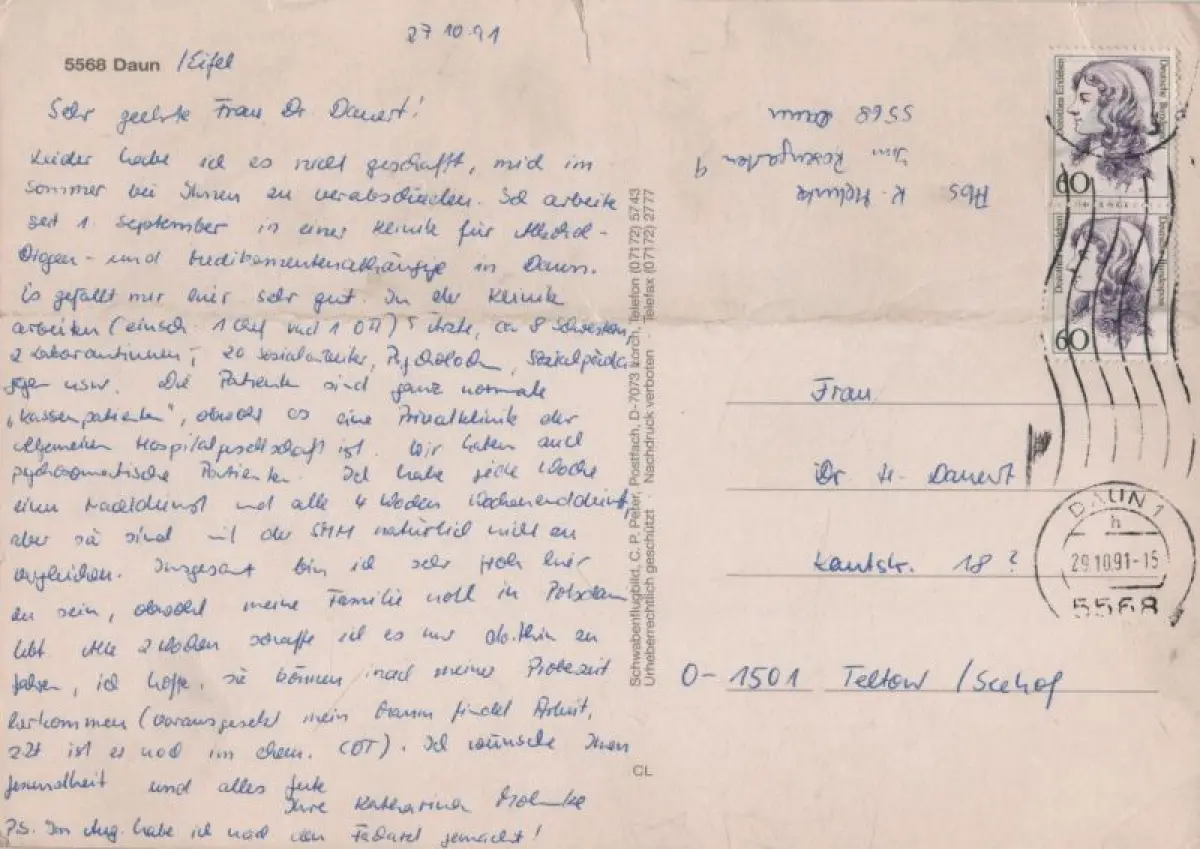 27 10.91
5568 Daun /Eifel
Sehr geehrte Frau Dr. Dauert!
Leider habe ich es nicht geschafft, mich im
Sommer bei Ihnen zu verabschieden. Ich arbeite
seit 1. September in einer Klinik für Alkohol-
Drogen- und Medikamentenabhängige in Daun.
Es gefällt mir hier sehr gut. In der Klinik
arbeiten (einsch. 1 Chef und 1 OA) 5 Ärzte, ca 8 Schwestern,
2 Laborantinnen, 20 Sozialarbeiter, Psycholochen, Sozialpäda
gogen usw. Die Patienten sind ganz normale
„Kassenpatienten", obwohl es eine Privatklinik der
Allgemeinen Hospitalgesellschaft ist. Wir haben auch
psychosomatische Patienten. Ich habe jede Woche
einen Nachtdienst und alle 4 Wochen Wochenenddienst,
aber sie sind mit der SMH natürlich nicht zu
vergleichen. Insgesamt bin ich sehr froh hier
zu sein, obwohl meine Familie noch in Potsdam
lebt. Alle 2 Wochen schaffe ich es nur dorthin zu
fahren, ich hoffe, sie können nach meiner Probezeit
herkommen (vorausgesetzt mein Mann findet Arbeit,
zZt ist er noch im chem. ). Ich wünsche Ihnen
Gesundheit und alles Gute
Ihre Katharina
P.S. Im Aug. habe ich noch den Facharzt gemacht!
Schwabenflugbild, C. P. Peter, Postfach, D-7073 Lorch, Telefon (07172) 5743
Urheberrechtlich geschützt · Nachdruck verboten · Telefax (07172) 2777
CL
Abs
K.
Im Rosengarten 9
5568 Daun
Deutsche Bundespost
Dorothea Erxleben
60
Deutsche Bundespost
Dorothea Erxleben
60
DAUN 1
h
29.10.91-15
5568
Frau
Dr H. Dauert
Kantstr. 18 ?
O-1501 Teltow /Seehof